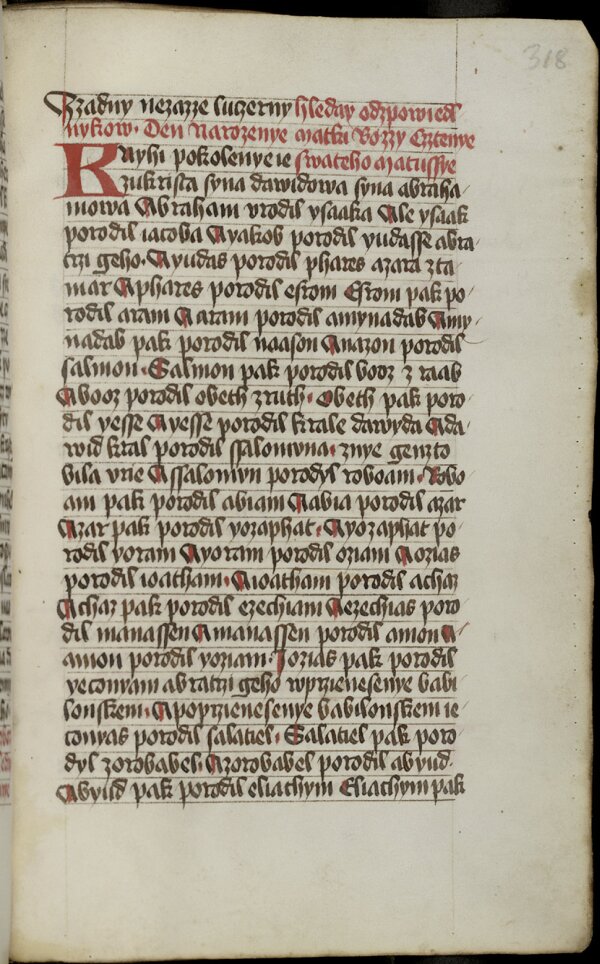 318
Zzadny nezazze luczerny hleday odzpowied
nykow · Den Narozenye matki Bozzy Cztenye
Knyhi pokolenye ie swateho matussye
zukrista syna dawidowa syna abraha
mowa Abraham vrodil ysaaka Ale ysaak
porodil iacoba Ayakob porodil yudasse abra
trzi geho · Ayudas porodil phares azara zta
mar Aphares porodil esrom Esrom pak po
rodil aram Aaram porodil amynadab Amy
nadab pak porodil naason Anazon porodil
salmon · Salmon pak porodil booz z raab
Abooz porodil obeth zruth · Obeth pak poro
dil yesse Ayesse porodil krale dawyda Ada
wid kral porodil ssalomuna · znye genzto
bila vrie Assalomun porodyl roboam · Robo
am pak porodil abiam Aabia porodil azar
Azar pak porodil yozaphat · Ayozaphat po
rodil yoram Ayoram porodil oziam Aozias
porodil ioatham · Aioatham porodil achaz
Achaz pak porodil ezechiam Aezechias poro
dil manassen Amanassen porodil amon A
amon porodil yoziam · Jozias pak porodil
yeconyam abratrzi geho wprzienesenye babi
lonskem · Apoprzienesenye babilonskem ie
conyas porodil salatiel · Salatiel pak poro
dyl zorobabel · Azorobabel porodil abyud ·
Abyud pak porodil eliachym Eliachym pak